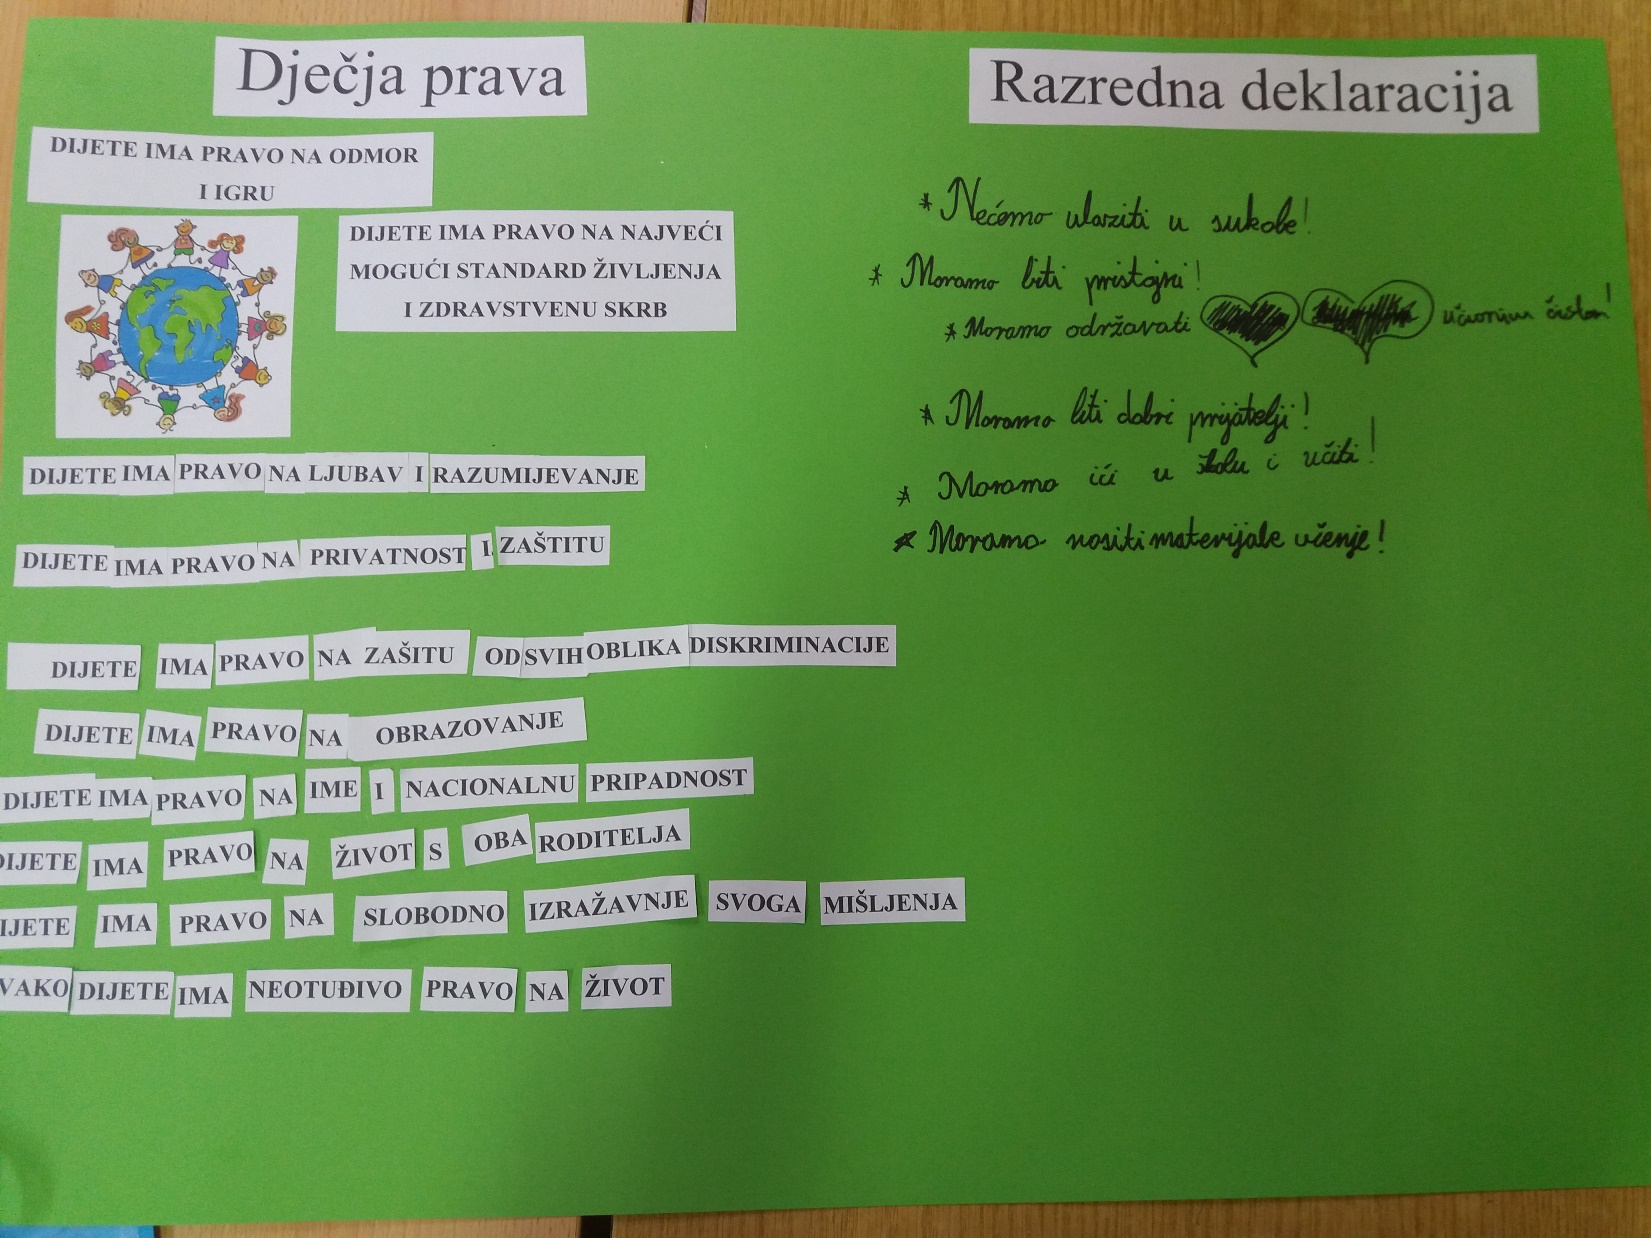 Dječja prava
DIJETE IMA PRAVO NA ODMOR
I IGRU
DIJETE IMA PRAVO NA NAJVEĆI
MOGUĆI STANDARD ŽIVLJENJA
I ZDRAVSTVENU SKRB
DIJETE IMA PRAVO NA LJUBAV I RAZUMIJEVANJE
DIJETE IMA PRAVO NA PRIVATNOST I ZAŠTITU
DIJETE IMA PRAVO NA ZAŠITU OD SVIH OBLIKA DISKRIMINACIJE
DIJETE IMA PRAVO NA OBRAZOVANJE
DIJETE IMA PRAVO NA IME I NACIONALNU PRIPADNOST
DIJETE IMA PRAVO NA ŽIVOT S OBA RODITELJA
IJETE IMA PRAVO NA SLOBODNO IZRAŽAVNJE SVOGA MIŠLJENJA
VAKO DIJETE IMA NEOTUĐIVO PRAVO NA ŽIVOT
Razredna deklaracija
* Nećemo ulaziti u sukobe!
* Moramo biti pristojni!
* Moramo održavati učionicu čistom!
* Moramo biti dobri prijatelji!
* Moramo ići u školu i učiti!
* Moramo nositi materijale učenje!